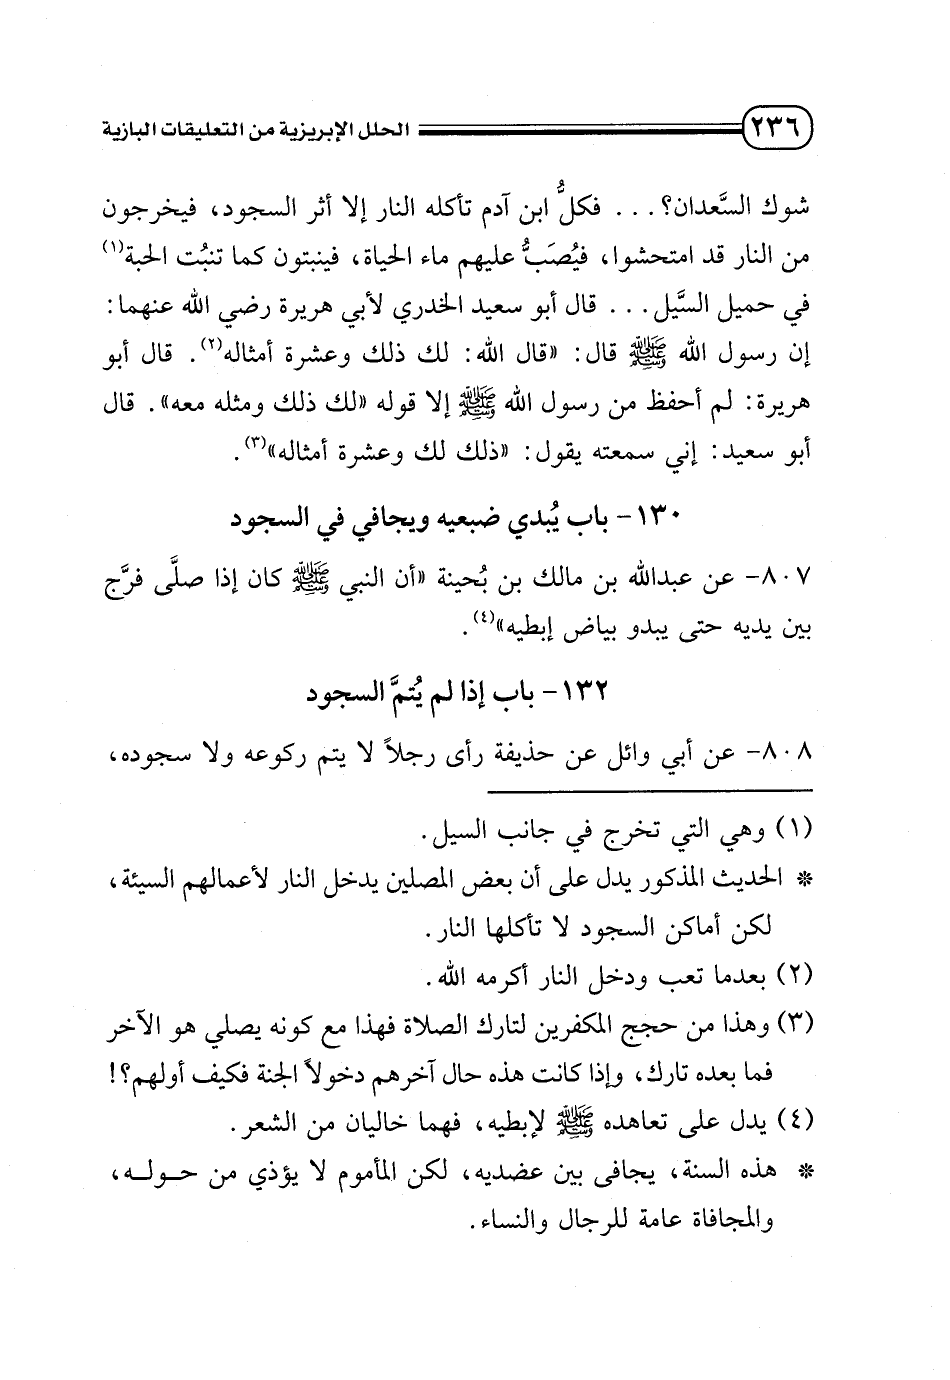 ٢٣٦ الحلل الإبريزية من التعليقات البازية
شوك السَّعدان؟ . . . فكلُّ ابن آدم تأكله النار إلا أثر السجود، فيخرجون
من النار قد امتحشوا، فيُصَبُّ عليهم ماء الحياة، فينبتون كما تنبُت الحبة(١)
في حميل السَّيل . . . قال أبو سعيد الخدري لأبي هريرة رضي الله عنهما:
إن رسول الله ﷺ قال: «قال الله: لك ذلك وعشرة أمثاله(٢). قال أبو
هريرة: لم أحفظ من رسول الله ﷺ إلا قوله «لك ذلك ومثله معه». قال
أبو سعيد: إني سمعته يقول: «ذلك لك وعشرة أمثاله»(٣).
١٣٠- باب يُبدي ضبعيه ويجافي في السجود
٨٠٧- عن عبدالله بن مالك بن بُحينة «أن النبي ﷺ كان إذا صلَّى فرَّج
بين يديه حتى يبدو بياض إبطيه»(٤).
١٣٢- باب إذا لم يُتمَّ السجود
٨٠٨- عن أبي وائل عن حذيفة رأى رجلاً لا يتم ركوعه ولا سجوده،
(١) وهي التي تخرج في جانب السيل.
* الحديث المذكور يدل على أن بعض المصلين يدخل النار لأعمالهم السيئة،
لكن أماكن السجود لا تأكلها النار.
(٢) بعدما تعب ودخل النار أكرمه الله.
(٣) وهذا من حجج المكفرين لتارك الصلاة فهذا مع كونه يصلي هو الآخر
فما بعده تارك، وإذا كانت هذه حال آخرهم دخولاً الجنة فكيف أولهم؟!
(٤) يدل على تعاهده ﷺ لإبطيه، فهما خاليان من الشعر.
* هذه السنة، يجافى بين عضديه، لكن المأموم لا يؤذي من حـولـه،
والمجافاة عامة للرجال والنساء.